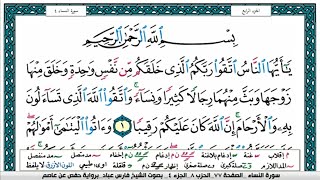 الجزء الرابع
سورة النساء ٤
بِسْمِ اللَّهِ الرَّحْمَٰنِ الرَّحِيمِ
يَٰٓأَيُّهَا النَّاسُ اتَّقُوا رَبَّكُمُ الَّذِي خَلَقَكُم مِّن نَّفْسٍ وَٰحِدَةٍ وَخَلَقَ مِنْهَا
زَوْجَهَا وَبَثَّ مِنْهُمَا رِجَالًا كَثِيرًا وَنِسَآءً ۚ وَاتَّقُوا اللَّهَ الَّذِي تَسَآءَلُونَ
بِهِۦ وَالْأَرْحَامَ ۚ إِنَّ اللَّهَ كَانَ عَلَيْكُمْ رَقِيبًا ١ وَءَاتُوا الْيَتَٰمَىٰٓ أَمْوَٰلَهُمْ
سورة النساء، الصفحة ٧٧، الحزب ٨، الجزء ٤، بصوت الشيخ فارس عباد، برواية حفص عن عاصم